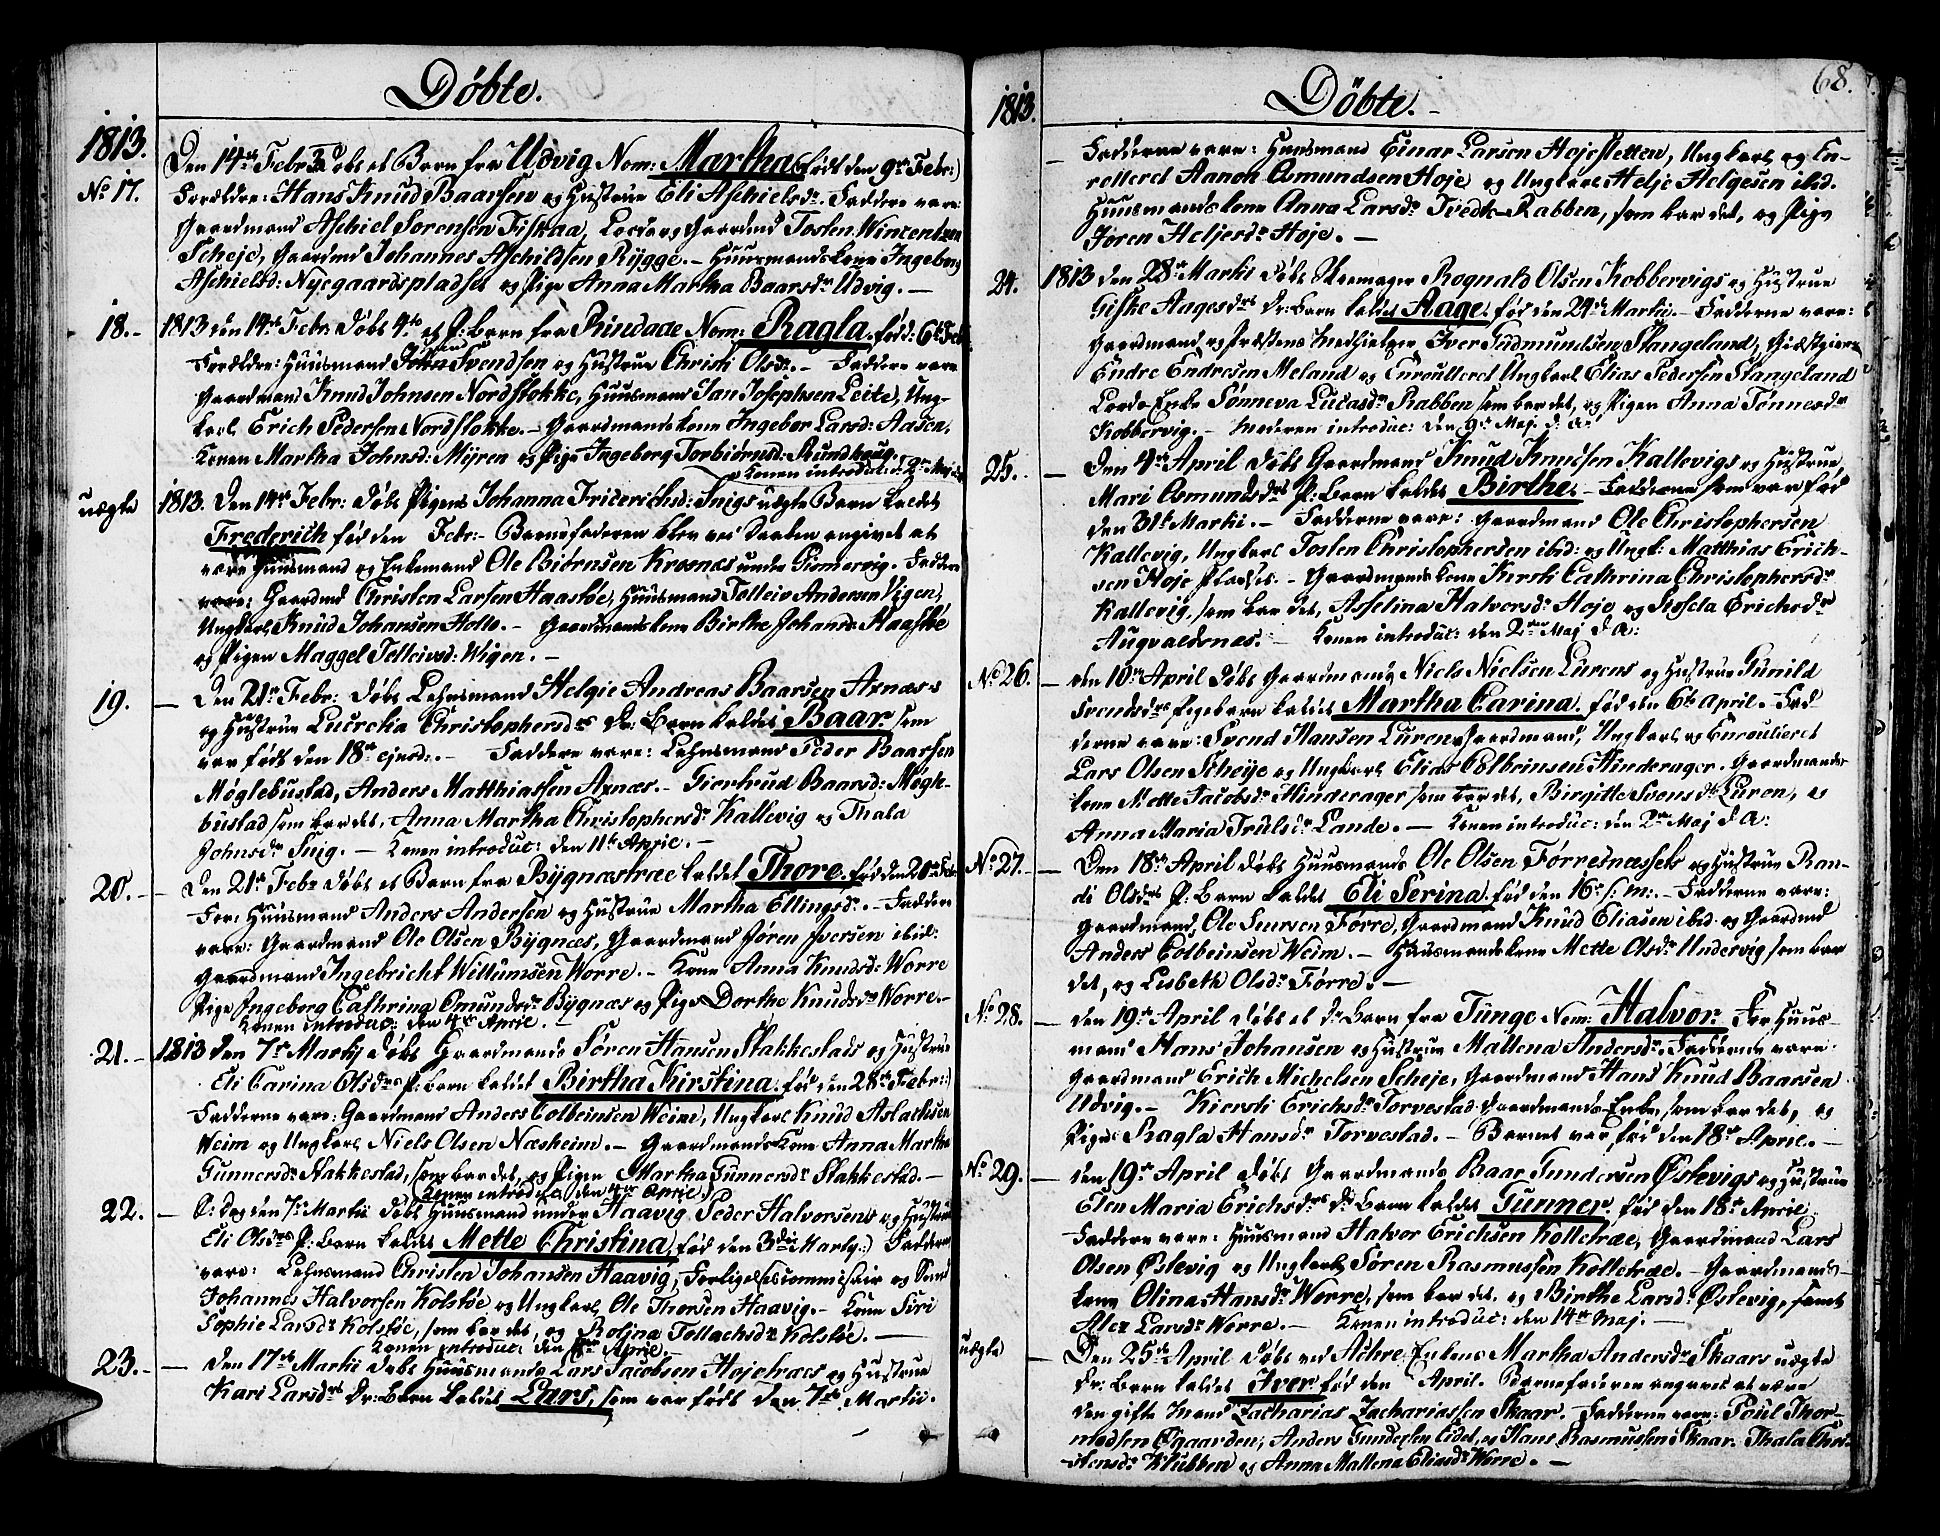 Döbte.
1813.
Den 14de Febr: Döbt et Barn fra Udvig Nom: Martha (född den 9de Febr:)
No 17.
Foreldre: Hans Knud Baarsen og Hustrue Eli Aschielsdr. Faddere vare:
Gaardmand Aschiel Sorensen Fiskaa, Gaardmd Tosten Wincentzen
Scheje, Gaardmd Johannes Aschildsen Rygge. – Huusmandskone Ingeborg
Aschielsd: Nyegaardspladset og Pige Anna Martha Baarsdr Udvig. –
18. –
1813 den 14de Febr: Döbt et P: Barn fra Rindade Nom: Ragla. född: 6te Febr
Foreldre: Huusmand Svendsen og Hustrue Christi Olsdr. – Faddere vare
Gaardmand Knud Johnsen Nordstokke, Huusmand Jan Josephsen Leite, Ung-
karl Erich Pedersen Nordstokke. – Gaardmandskone Ingebor Larsd: Aasen,
Konen Martha Johnsd: Myren og Pige Ingeborg Torbiörnsd: Rundhaug.
Konen introduc: d: 2den Maj
uægte
1813. Den 14de Febr: Döbt Pigens Johanna Friderichsd: Snigs uægte Barn kaldet
Frederich född den Febr: – Barnefaderen blev ved Daaben angivet at
være Huusmand og Enkemand Ole Biörnsen Krosnæs under Gismervig. Faddere
vare: Gaardmd Christen Larsen Haastöe, Huusmand Tolleiv Andersen Vigen,
Ungkarl Knud Johansen Holle. – Gaardmandskone Birthe Johansdr Haastöe
og Pigen Maggel Tolleivsd: Wigen. –
19.
– Den 21de Febr: Döbt Lehnsmand Helgie Andreas Baarsen Axnæs's
og Hustrue Lucretia Christophersdrs Dr: Barn kaldet Baar som
var född den 18de ejusd: – Faddere vare: Lehnsmand Peder Baarsen
Möglebustad, Anders Matthiassen Axnæs. – Giertrud Baarsd: Mögle-
bustad som bar det, Anna Martha Christophersdr Kallevig og Thala
Johnsdr Snig. – Konen introduc: den 11te Aprie. –
20. –
Den 21de Febr Döbt et Barn fra Bygnæstræe kaldet Thore. född den 20de Febr
For: Huusmand Anders Andersen og Hustrue Martha Ellingsdr. – Faddere
vare: Gaardmand Ole Olsen Bygnæs, Gaardmand Jören Iversen ibid:
Gaardmand Ingebricht Willumsen Worre. – Kone Anna Knudsd: Worre
Pige Ingeborg Cathrina Omundsdr Bygnæs og Pige Dorthe Knudsdr Worre. –
Konen introduc: den 4de Aprie. –
21. –
1813 den 7de Martij Döbt Gaardmands Sören Hansen Stakkestads og Hustrue
Eli Carina Olsdrs P: Barn kaldet Birtha Kirstina. född den 28de Febr:)
Fadderne vare: Gaardmand Anders Colbeinsen Weim, Ungkarl Knud Aslachsen
Weim og Ungkarl Niels Olsen Næsheim. – Gaardmands Kone Anna Martha
Gunnersdr Stakkestad, som bar det, og Pigen Martha Gunnersdr Stakkestad. –
(Konen introduc: den 4de Aprie)
22. –
– P: Dag den 7de Martii Döbt Huusmand under Haavig Peder Halvorsens og Hustrue
Eli Olsdrs P: Barn kaldet Mette Christina, född den 3die Martij:) Faddere
vare: Lehnsmand Christen Johansen Haavig, Forligelsescommissair og
Johannes Halvorsen Kolstöe og Ungkarl Ole Thorsen Haavig. – Kone Siri
Sophie Larsdr Kolstöe, som bar det, og Rolina Tollachsdr Kolstöe. –
Konen introduc: den Aprie. –
23. –
– Den 17de Martii Döbt Huusmands Lars Jacobsen Hojetraes og Hustrue
Kari Larsdrs Dr: Barn kaldet Lars, som var född den 7de Martii.
68.
Döbte. –
1813.
– Fadderne vare: Huusmand Einar Larsen Hojesletten, Ungkarl og En-
rolleret Aanon Osmundsen Hoje og Ungkarl Helje Helgesen ibid.
Huusmandskone Anna Larsdr Tvedte-Rabben, som bar det, og Pige
Jören Heljesdr Hoje. –
24.
1813 den 28de Martii Döbt Skoemager Rognald Olsen Kobbervigs og Hustrue
Giske Aagesdrs Dr: Barn kaldet Aage. född den 24de Martii. – Fadderne vare:
Gaardmand og Præstens Medhielper Iver Gudmundsen Stangeland, Giæstgiver
Endre Endresen Meland og Enroulleret Ungkarl Elias Pedersen Stangeland
Lords Enke Sönneva Lucasdr Rabben som bar det, og Pigen Anna Tönnesdr
Kobbervig. – Moderen introduc: den 9de Maj. d. a.
25. –
– Den 4de April Döbt Gaardmand Knud Knudsen Kallevigs og Hustrue
Mari Osmundsdrs P: Barn kaldet Birthe. – Fadderne som var född
den 31te Martii. – Fadderne vare: Gaardmand Ole Christophersen
Kallevig, Ungkarl Tosten Christophersen ibid: og Ungk: Matthias Erich-
sen Hoje Pladset. – Gaardmandskone Kirsti Cathrina Christophersdr
Kallevig, som bar det, Asselina Halvorsdr Hoje og Sissela Erichsdr
Augvaldsnæs. – Konen introduc: den 2den Maj d. a:
No 26.
– den 10de April Döbt Gaardmand Niels Nielsen Lurens og Hustrue Gunild
Svendsdrs Pigebarn kaldet Martha Carina. född den 6te April. – Fad
derne vare: Svend Hansen Luren Gaardmand, Ungkarl og Enroulleret
Lars Olsen Scheije og Ungkarl Elias Colbeinsen Hinderager. Gaardmands
kone Mette Jacobsdr Hinderager som bar det, Birgitte Svensdr Luren, og
Anna Maria Trulsdr Lande. – Konen introduc: den 2den Maj d. a:
No 27. –
– Den 18de April Döbt Huusmands Ole Olsen Förresnæssets og Hustrue Ran-
di Olsdrs P: Barn kaldet Eli Serina. född den 16de s: m: – Fadderne vare:
Gaardmand Ole Sjursen Förre, Gaardmand Knud Eliasen ibid. og Gaardmd
Anders Colbeinsen Weim. – Huusmandskone Mette Olsdr Undervig som bar
det, og Lisbeth Olsdr Förre. –
No 28.
– den 19de April Döbt et Dr: Barn fra Tunge Nom: Halvor. For Huus-
mand Hans Johansen og Hustrue Mallena Andersdr. Fadderne vare:
Gaardmand Erich Michelsen Scheje, Gaardmand Hans Knud Baarsen
Udvig. – Kiersti Erichsdr Torvestad Gaardmands-Enke som bar det, og
Pige Ragla Hansdr Torvestad. – Barnet var född den 18de Aprie. –
No 29. –
– den 19de April Döbt Gaardmands Baar Gundersen Östevigs og Hustrue
Elen Maria Erichsdrs Dr: Barn kaldet Gunner. född den 18de Aprie.
Faddere vare: Huusmand Halvor Erichsen Kolletræe, Gaardmand Lars
Olsen Östevig og Ungkarl Sören Rasmussen Kolletræe. – Gaardmands-
kone Olina Hansdr Worre, som bar det, og Birthe Larsdr Östevig, samt
Alex Larsdr Worre. – Konen introduc: den 14de Maj. –
uægte
– Den 25de April Döbt ved Achre Enkens Martha Andersdr Skaars uægte
Dr: Barn kaldet Iver född den April. Barnefaderen angavet at være
den gifte Mand Zacharias Zachariassen Skaar. – Fadderne vare: Poul Thor-
modsen Ögaarden, Anders Gundersen Eidet, og Hans Rasmussen Skaar. Thala Chri-
stensdr Klubben og Anna Mallena Eliasdr Worre. –